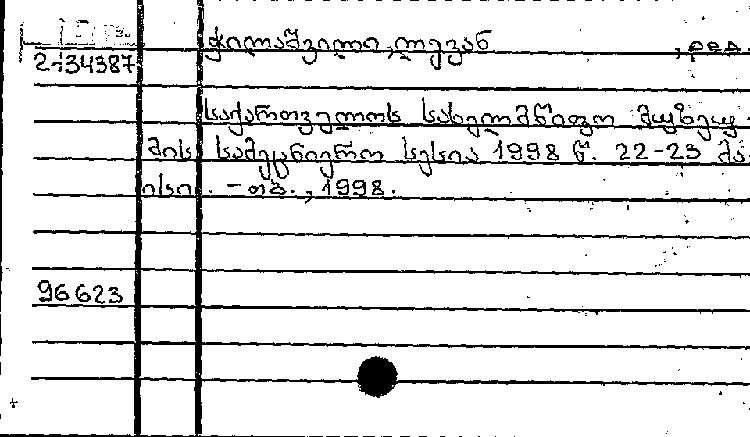 ჭილაშვილი, ლევან , რედ
2-134387
საქართველოს სახელმწიფო მუზეუ-
მის სამეცნიერო სესია 1998 წ. 22-23 მა-
ისი. - თბ., 1998.
96623